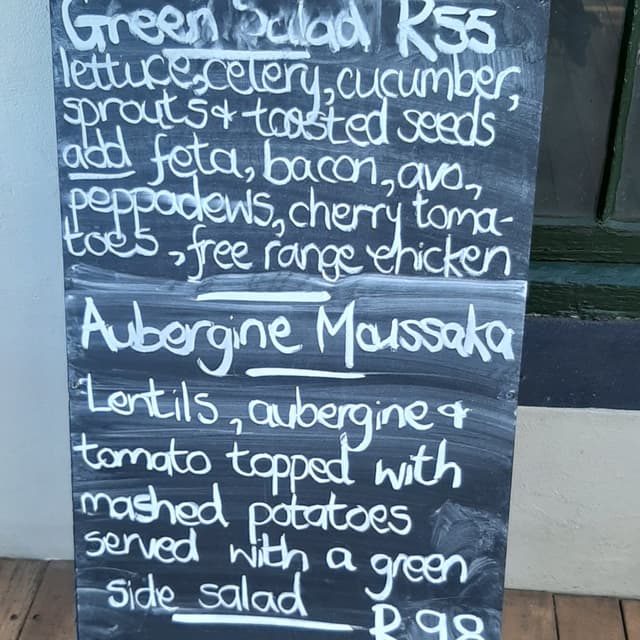 Green Salad R55
lettuce, celery, cucumber,
sprouts & toasted seeds
add feta, bacon, avo,
peppadews, cherry toma-
toes, free range chicken
Aubergine Moussaka
Lentils, aubergine &
tomato topped with
mashed potatoes
served with a green
side salad
R98